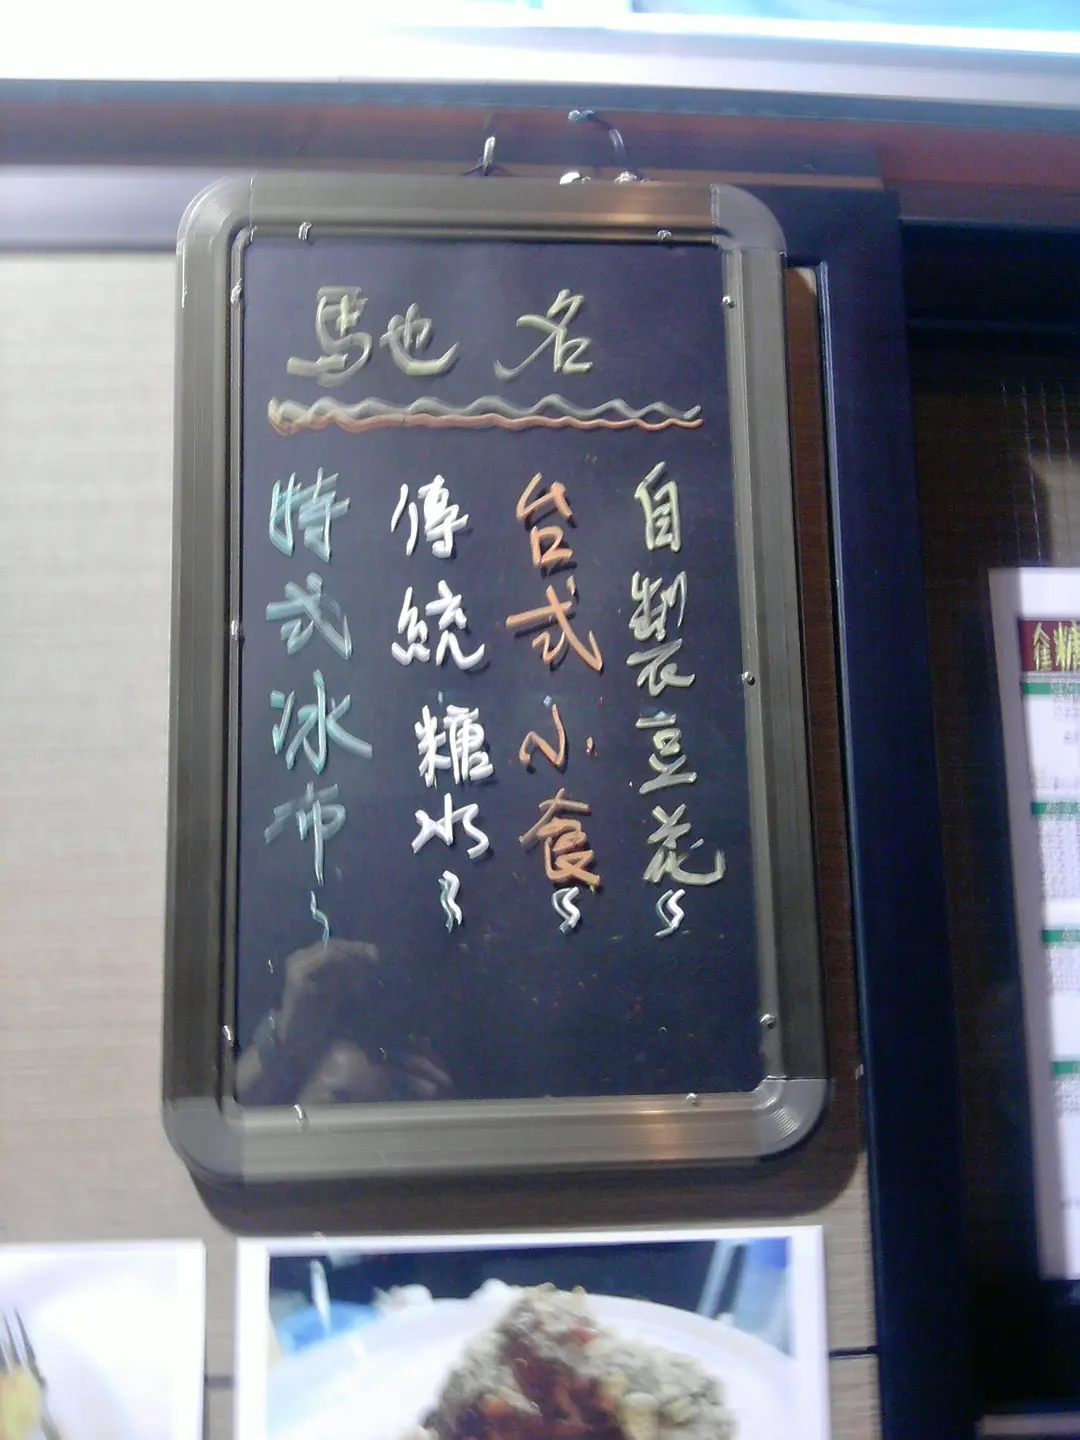 馳名
自製豆花
台式小食
傳統糖水
特式冰沛
金糖